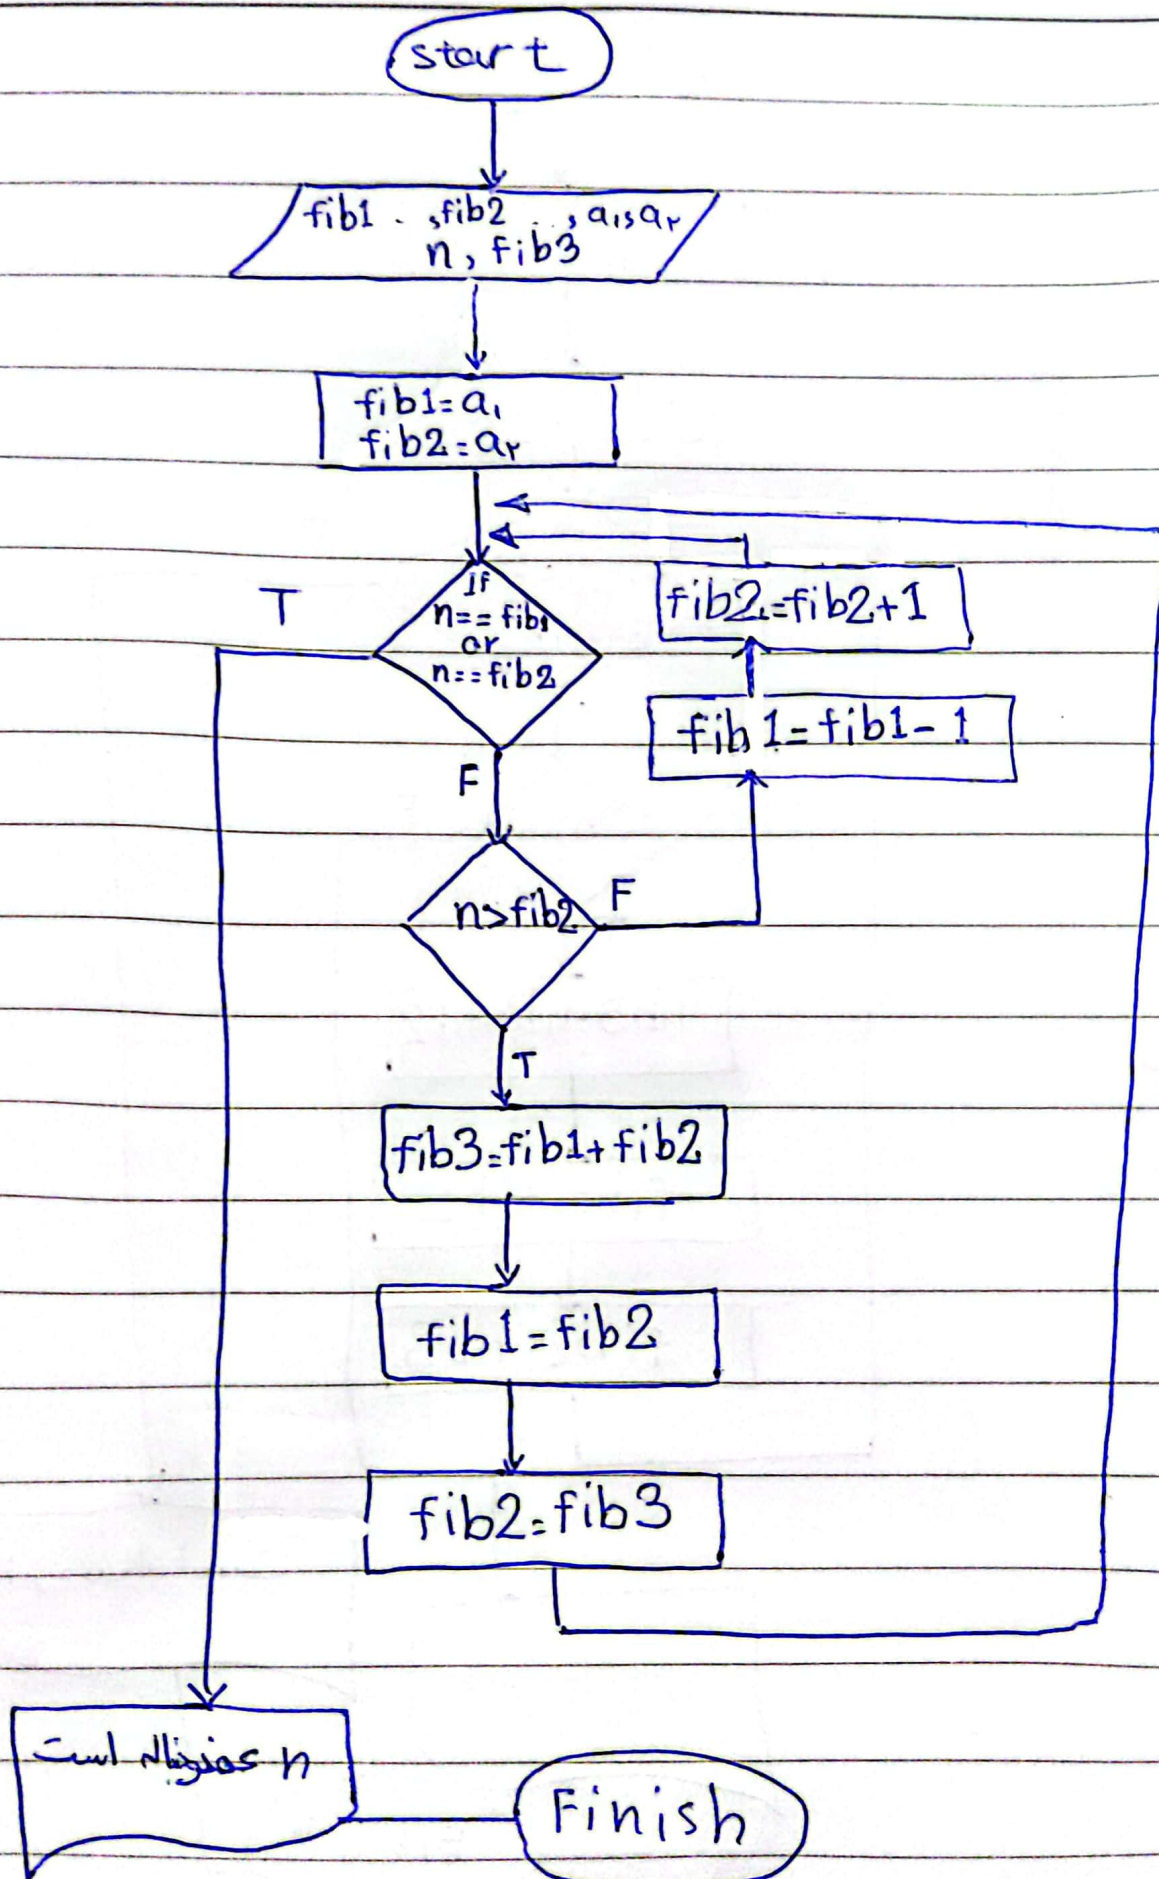 start
fib1 . , fib2 . . , a۱, a۲
n, fib3
fib1=a۱
fib2=a۲
If
n== fib1
or
n==fib2
T
F
fib2=fib2+1
fib1=fib1-1
n>fib2
F
T
fib3=fib1+fib2
fib1=fib2
fib2=fib3
n عضو دنباله است
Finish